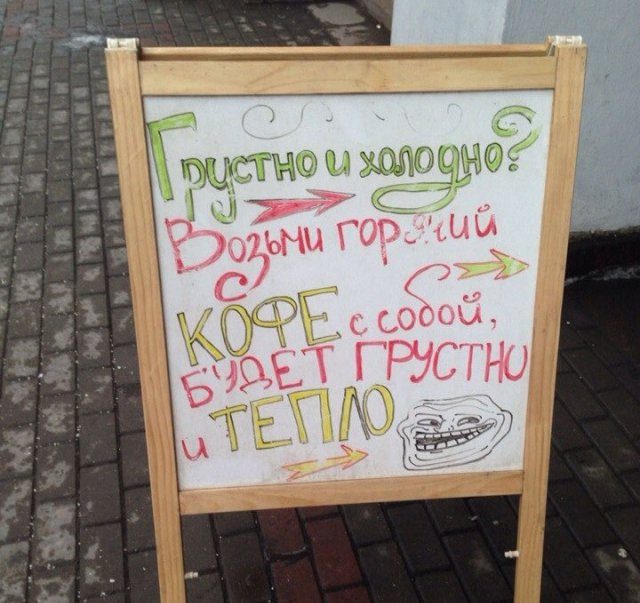 Грустно и холодно?
Возьми горячий
КОФЕ с собой,
БУДЕТ ГРУСТНО
и ТЕПЛО